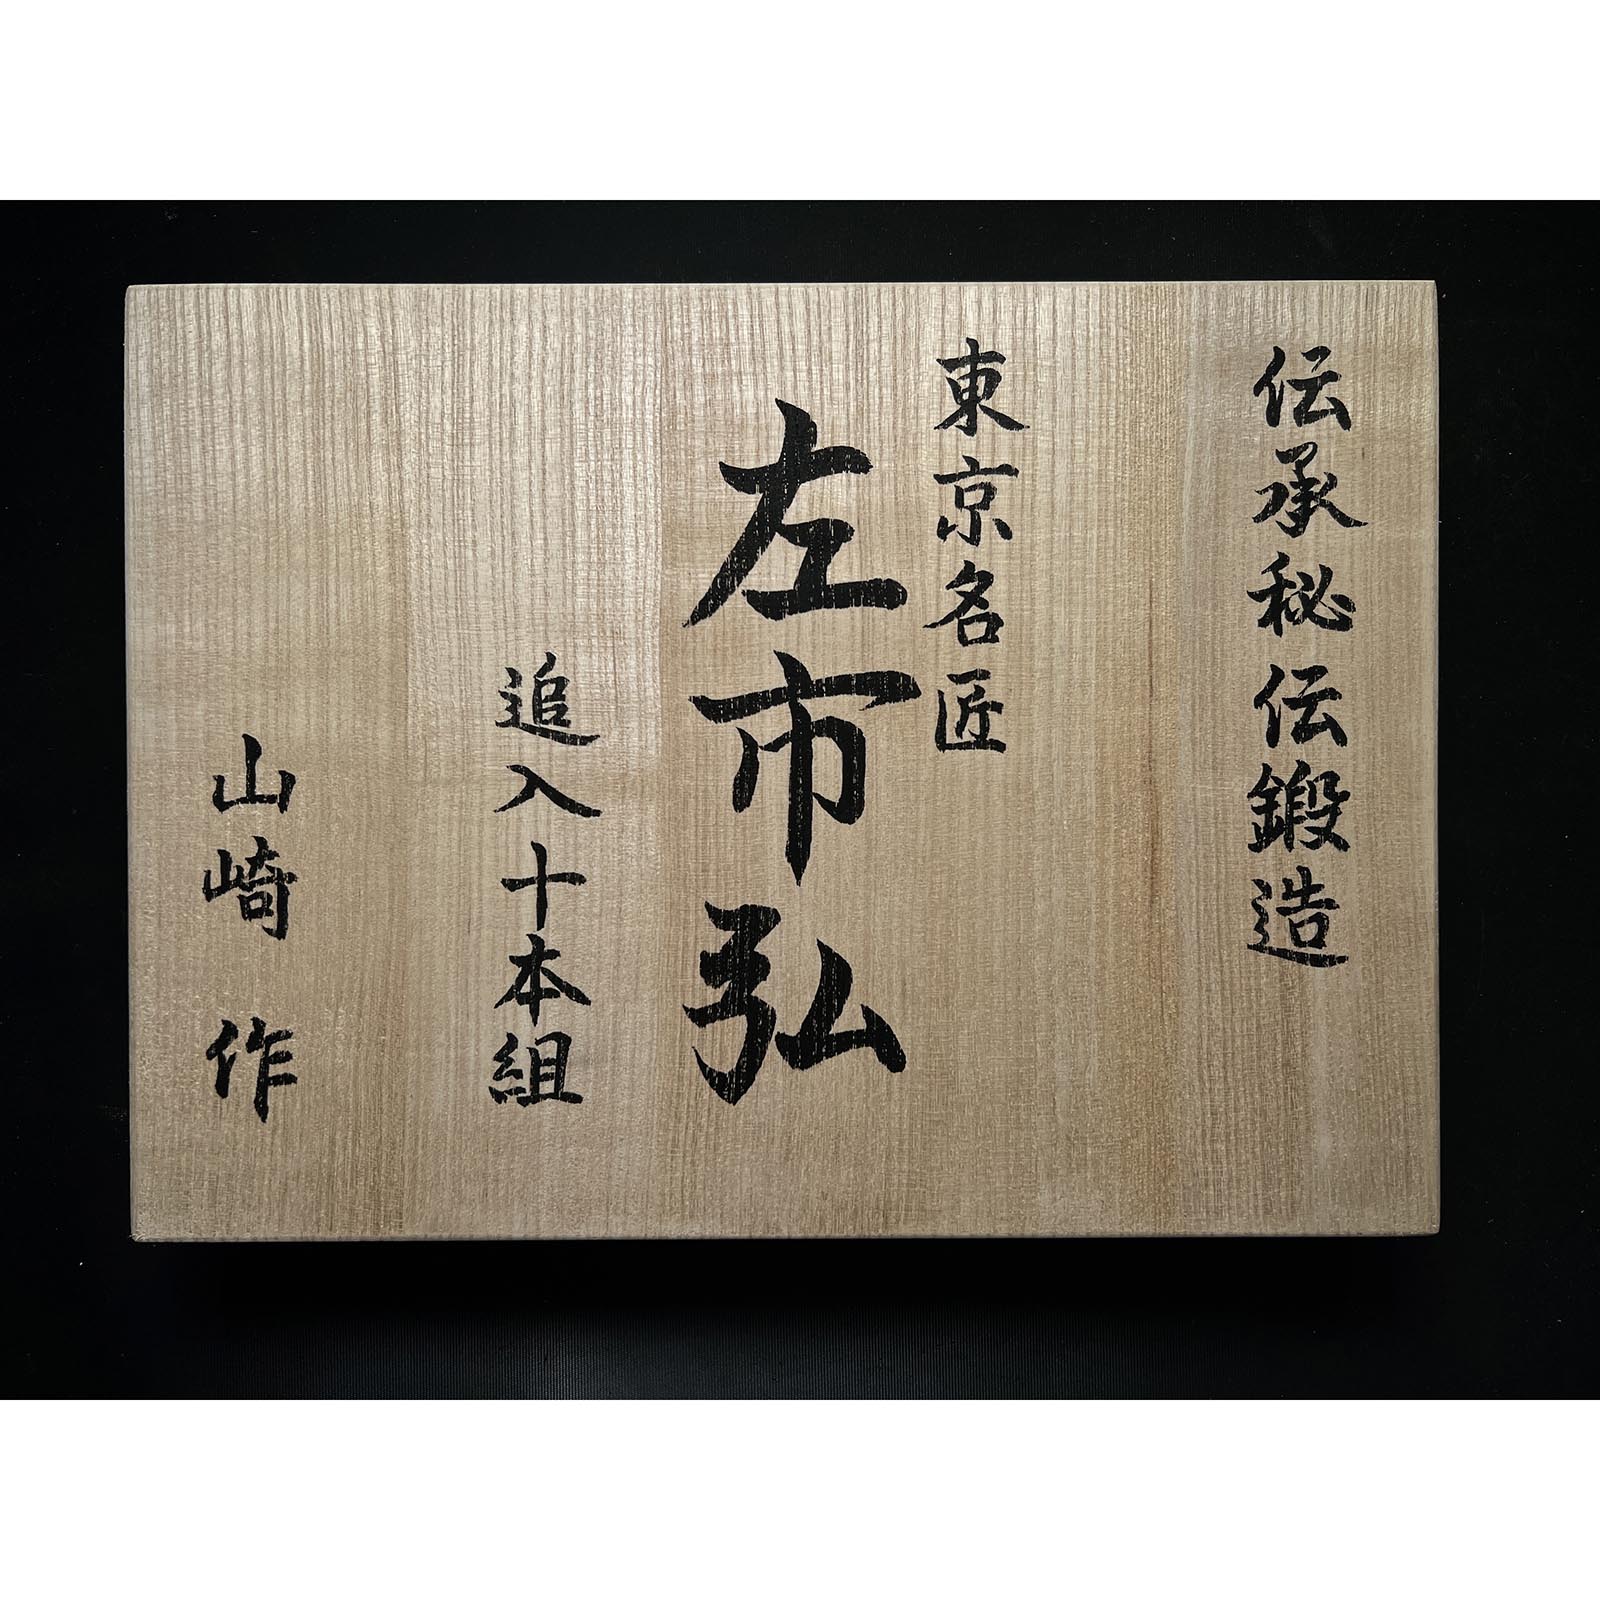 伝承秘伝鍛造
東京名匠
左市弘
追入十本組
山崎 作